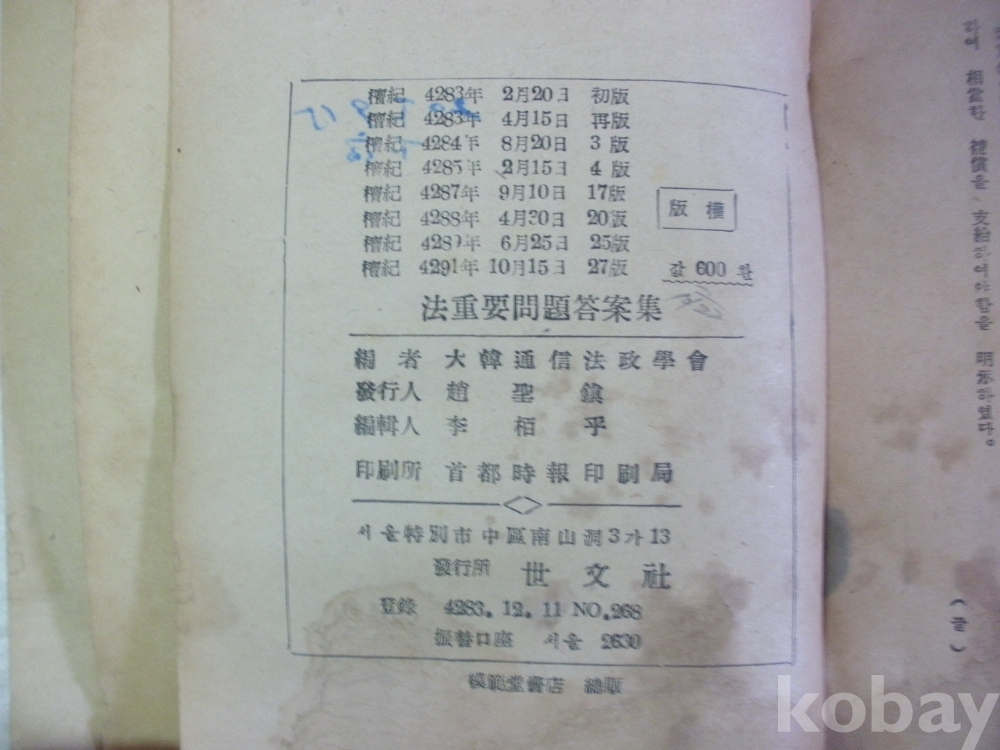 檀紀 4283年 2月20日 初版
檀紀 4283年 4月15日 再版
檀紀 4284年 8月20日 3版
檀紀 4285年 2月15日 4版
檀紀 4287年 9月10日 17版
檀紀 4288年 4月30日 20版
檀紀 4289年 6月25日 25版
檀紀 4291年 10月15日 27版
版權
값 600환
法重要問題答案集
編者 大韓通信法政學會
發行人 趙聖鎭
編輯人 李栢乎
印刷所 首都時報印刷局
서울特別市中區南山洞3가13
發行所 世文社
登錄 4283. 12. 11 NO. 268
振替口座 서울 2630
模範堂書店 總販
하여 相當한 補償을 支給하여야함을 明示하였다。
(끝)
kobay